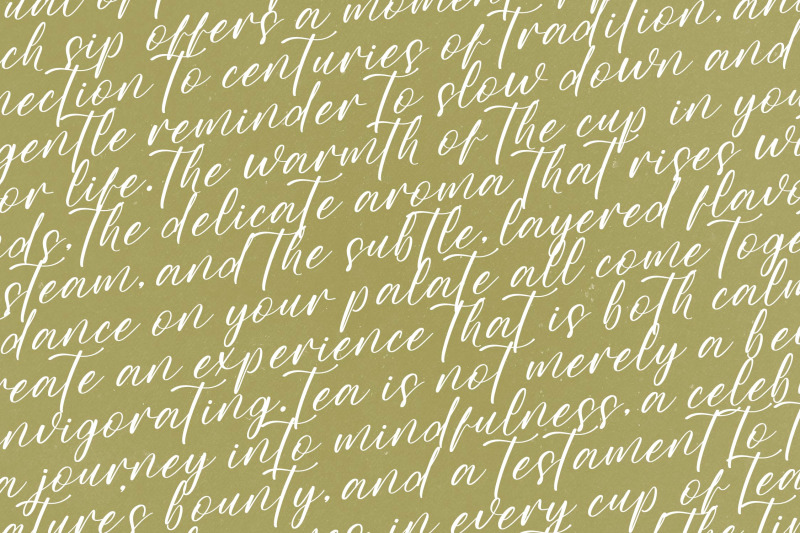 ch sip offers a moment
nection to centuries of tradition, an
gentle reminder to slow down and
or life. The warmth of the cup in you
ds, The delicate aroma that rises wi
steam, and the subtle, layered flavo
dance on your palate all come toge
reate an experience that is both calm
nvigorating. Tea is not merely a be
a journey into mindfulness, a celeb
atures bounty, and a testament to t
in every cup of tea
the tim